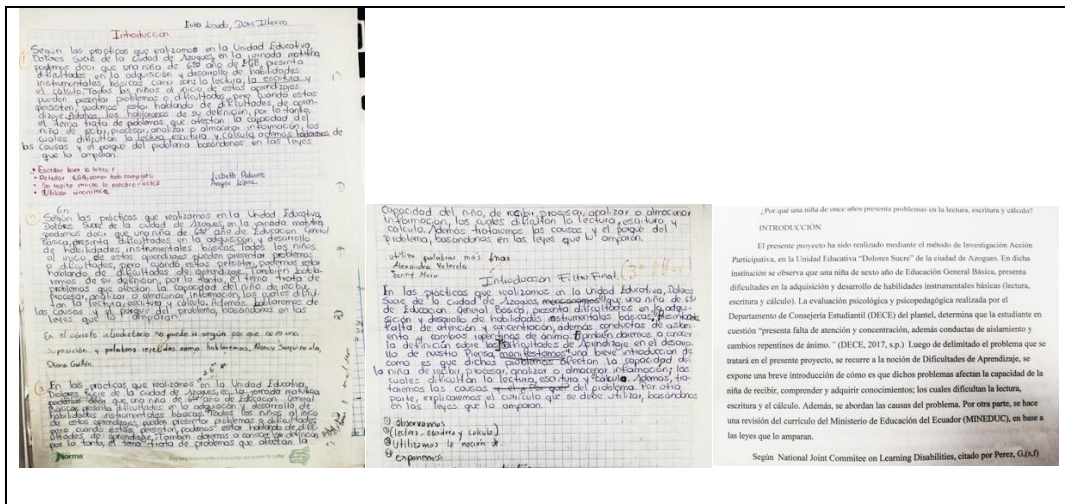 Introducción
Según las prácticas que realizamos en la Unidad Educativa,
Dolores Sucre de la ciudad de Azogues, en la jornada matutina,
podemos decir que una niña de 6to año de EGB, presenta
dificultades en la adquisición y desarrollo de habilidades
instrumentales, básicas como son: la lectura, la escritura y
el cálculo. Todos los niños al inicio de estos aprendizajes
pueden presentar problemas o dificultades, pero cuando estas
persisten, podemos estar hablando de dificultades, de apren-
dizaje. Además les hablaremos de su definición, por lo tanto,
el tema trata de problemas que afectan la capacidad del
niño de recibir, procesar, analizar o almacenar información, los
cuales dificultan la lectura, escritura y cálculo, además hablaremos de
las causas y el porqué del problema basándonos en las leyes
que lo amparan.
• Escribir bien la letra r
• Detallar EGB, poner todo completo
• Se repite mucho la palabra
• Utilizar sinónimos
En
Según las prácticas que realizamos en la Unidad Educativa,
Dolores Sucre de la ciudad de Azogues, en la jornada matutina,
podemos decir que una niña de 6to año de Educación General
Básica, presenta dificultades en la adquisición y desarrollo
de habilidades instrumentales básicas. Todos los niños
al inicio de estos aprendizajes pueden presentar problemas
o dificultades, pero cuando estas persisten, podemos estar
hablando de dificultades de aprendizaje. También habla-
remos de su definición, por lo tanto, el tema trata de
problemas que afectan la capacidad del niño de recibir,
procesar, analizar o almacenar información, los cuales dificul-
tan la lectura, escritura y cálculo. Además hablaremos de
las causas y el porqué del problema, basándonos en las
leyes que lo amparan.
En el párrafo introductorio no puede ir según por que no es una
suposición y palabras repetidas como hablaremos,
Diana Guillén
En las prácticas que realizamos en la Unidad Educativa,
Dolores Sucre de la ciudad de Azogues, en la jornada matutina
podemos decir que una niña de 6to año de Educación General
Básica, presenta dificultades en la adquisición y desarrollo
de habilidades instrumentales básicas. Todos los niños al inicio
de estos aprendizajes, pueden presentar problemas o dificultades
pero cuando estas persisten, podemos estar hablando de difi-
cultades de aprendizaje. También daremos a conocer la definición,
por lo tanto, el tema trata de problemas que afectan la
Norma
Capacidad del niño, de recibir, procesar, analizar o almacenar
información, los cuales dificultan la lectura, escritura y
cálculo. Además trataremos las causas y el porqué del
problema, basándonos en las leyes que lo amparan.
utilizar palabras más finas
Alexandra Valverde
Introducción Filtro Final
En las prácticas que realizamos en la Unidad Educativa, Dolores
Sucre de la ciudad de Azogues, mencionamos que una niña de 6to
de Educación General Básica, presenta dificultades en la adqui-
sición y desarrollo de habilidades instrumentales básicas, presenta
falta de atención y concentración, además conductas de aislami-
ento y cambios repentinos de ánimo. También daremos a conocer
la definición sobre las Dificultades de Aprendizaje en el desarro-
llo de nuestro Piensa, manifestamos una breve introducción de
como es que dichos problemas afectan la capacidad de
la niña de recibir, procesar, analizar o almacenar información; las
cuales dificultan la lectura, escritura y cálculo. Además, tra-
taremos las causas y el porqué del problema. Por otra
parte, explicaremos el currículo que se debe utilizar, basándonos
en las leyes que lo amparan.
① observamos
② (lectura, escritura y cálculo)
③ Utilizamos la noción de
④ exponemos
¿Por qué una niña de once años presenta problemas en la lectura, escritura y cálculo?
INTRODUCCIÓN
El presente proyecto ha sido realizado mediante el método de Investigación Acción
Participativa, en la Unidad Educativa “Dolores Sucre” de la ciudad de Azogues. En dicha
institución se observa que una niña de sexto año de Educación General Básica, presenta
dificultades en la adquisición y desarrollo de habilidades instrumentales básicas (lectura,
escritura y cálculo). La evaluación psicológica y psicopedagógica realizada por el
Departamento de Consejería Estudiantil (DECE) del plantel, determina que la estudiante en
cuestión “presenta falta de atención y concentración, además conductas de aislamiento y
cambios repentinos de ánimo. ” (DECE, 2017, s.p.) Luego de delimitado el problema que se
tratará en el presente proyecto, se recurre a la noción de Dificultades de Aprendizaje, se
expone una breve introducción de cómo es que dichos problemas afectan la capacidad de la
niña de recibir, comprender y adquirir conocimientos; los cuales dificultan la lectura,
escritura y el cálculo. Además, se abordan las causas del problema. Por otra parte, se hace
una revisión del currículo del Ministerio de Educación del Ecuador (MINEDUC), en base a
las leyes que lo amparan.
Según National Joint Commitee on Learning Disabilities, citado por Perez, G.(s,f)